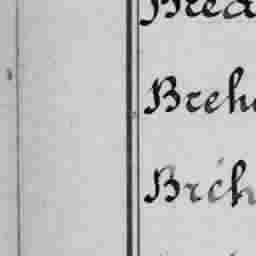 Brea
Breh
Brch